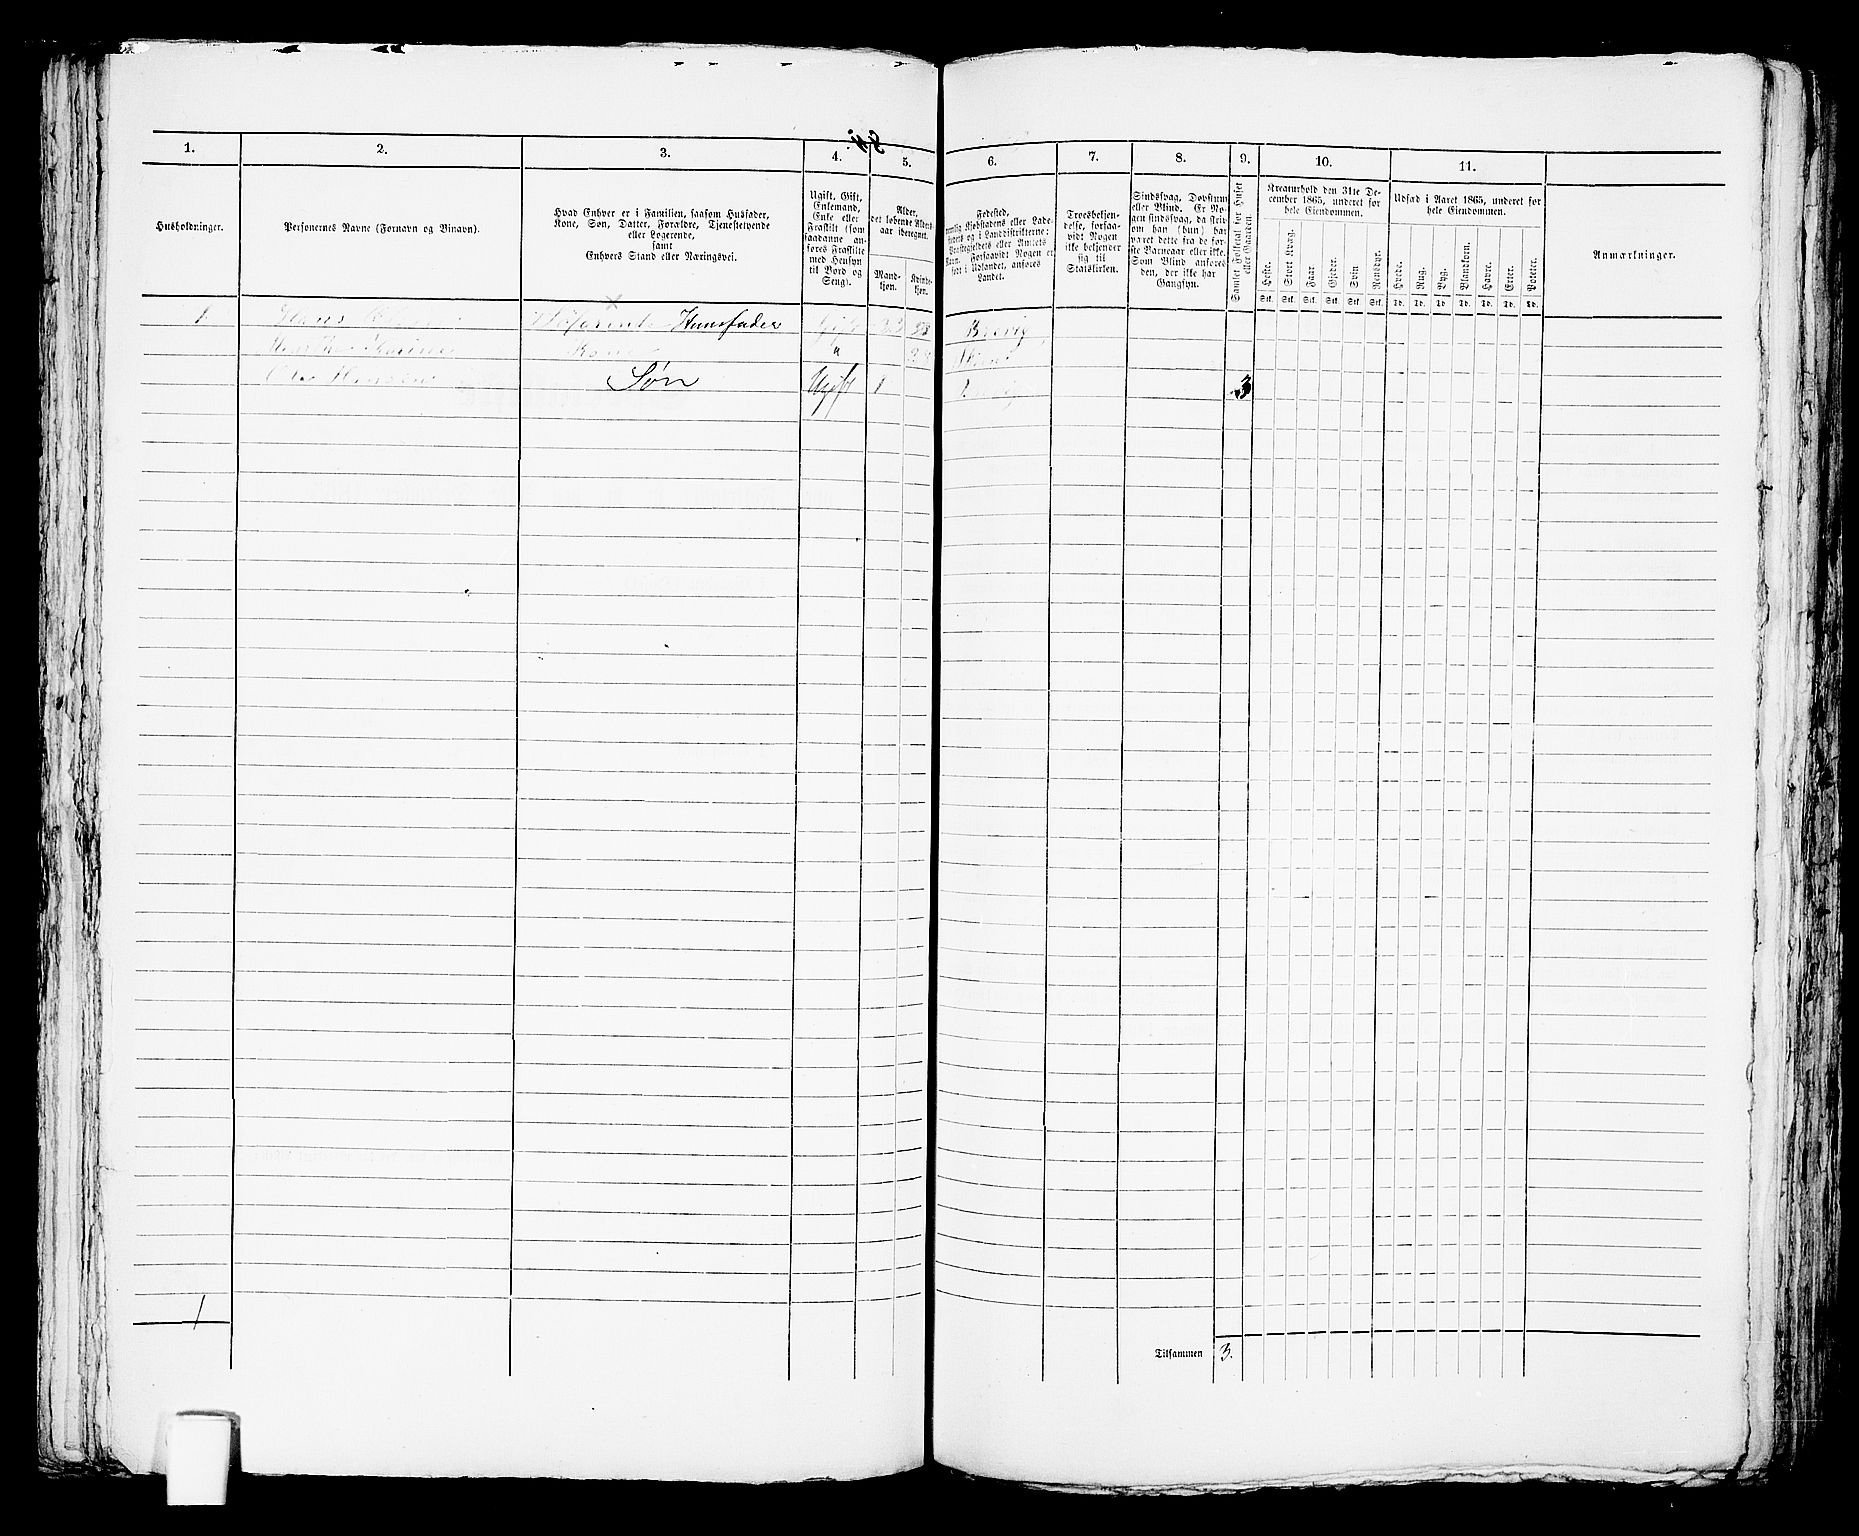 1. 2. 3. 4. 5. 6. 7. 8. 9. 10. 11.
Husholdninger.
Personernes Navne (Fornavn og Binavn).
Hvad Enhver er i Familien, saasom Husfader,
Kone, Søn, Datter, Forældre, Tjenestetyende
eller Logerende,
samt
Enhvers Stand eller Næringsvei.
Ugift, Gift,
Enkemand,
Enke eller
Fraskilt (som
saadanne an-
føres Fraskilte
med Hensyn
til Bord og
Seng).
Alder,
det løbende Alders-
aar iberegnet.
Mand-
kjøn.
Kvinde-
kjøn.
Fødested,
nemlig Kjøbstadens eller Lade-
stedets og i Landdistrikterne:
Præstegjeldets eller Amtets
Navn. Forsaavidt Nogen er
født i Udlandet, anføres
Landet.
Troesbekjen-
delse, forsaa-
vidt Nogen
ikke bekjender
sig til
Statskirken.
Sindssvag, Døvstum
eller Blind. Er No-
gen sindssvag, da skri-
ves om han (hun) har
været dette fra de før-
ste Barneaar eller ikke.
Som Blind anføres
den, der ikke har
Gangsyn.
Samlet Folketal for Huset
eller Gaarden.
Kreaturhold den 31te De-
cember 1865, underet for
hele Eiendommen.
Heste. Stort Kvæg. Faar Gjeder. Svin Rensdyr.
Stk. Stk. Stk. Stk. Stk. Stk.
Udsæd i Aaret 1865, underet for
hele Eiendommen.
Hvede. Rug. Byg. Blandkorn. Havre. Erter. Poteter.
Td. Td. Td. Td. Td. Td. Td.
Anmærkninger.
1 Hans Huusfader Gift Brevig
Kone "
Søn Ugift 1 3
1
Tilsammen 3.